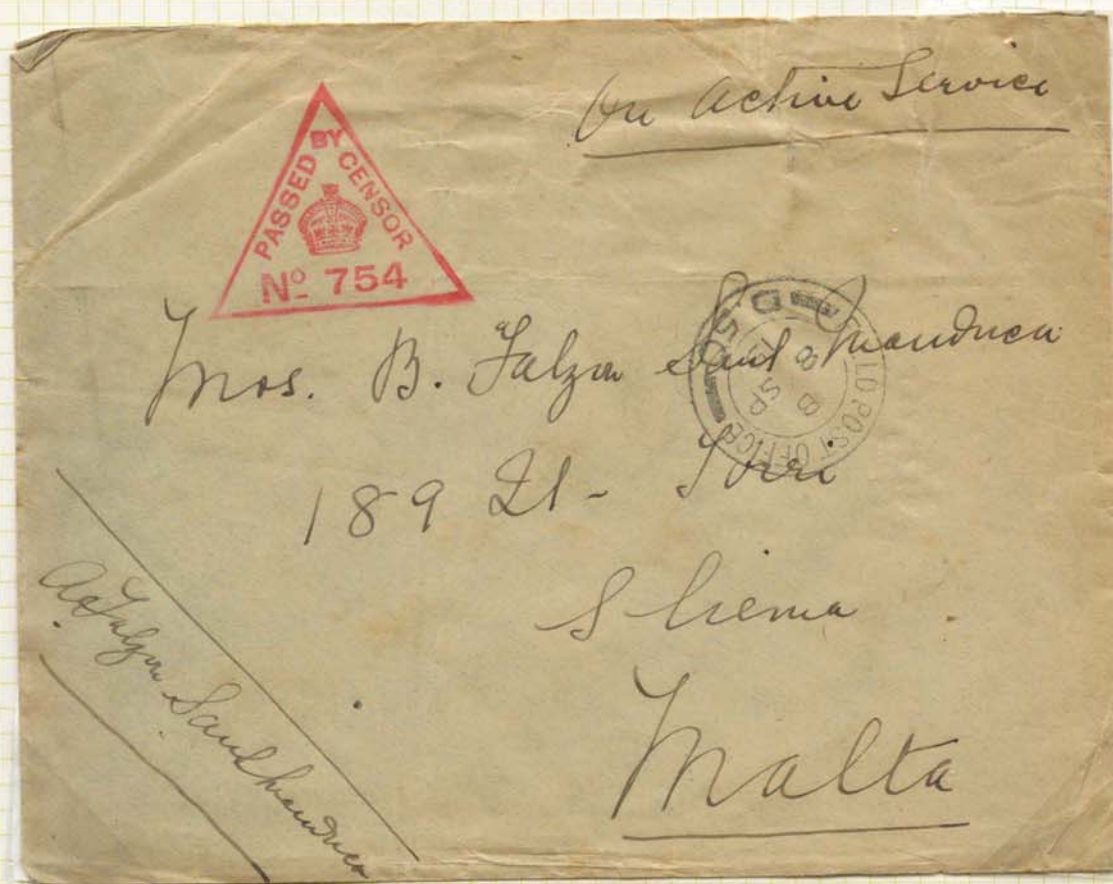 On Active Service
PASSED BY CENSOR
Nº 754
Mrs. B. Falzon Sant Manduca
FIELD POST OFFICE
189 St- Torri
Sliema
Malta
Falzon Sant Manduca